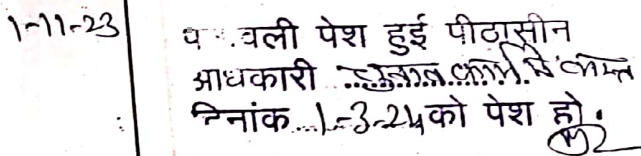 1-11-23
प वली पेश हुई पीठासीन
आधकारी ........ में व्यस्त
दिनांक...1-3-24 को पेश हो.